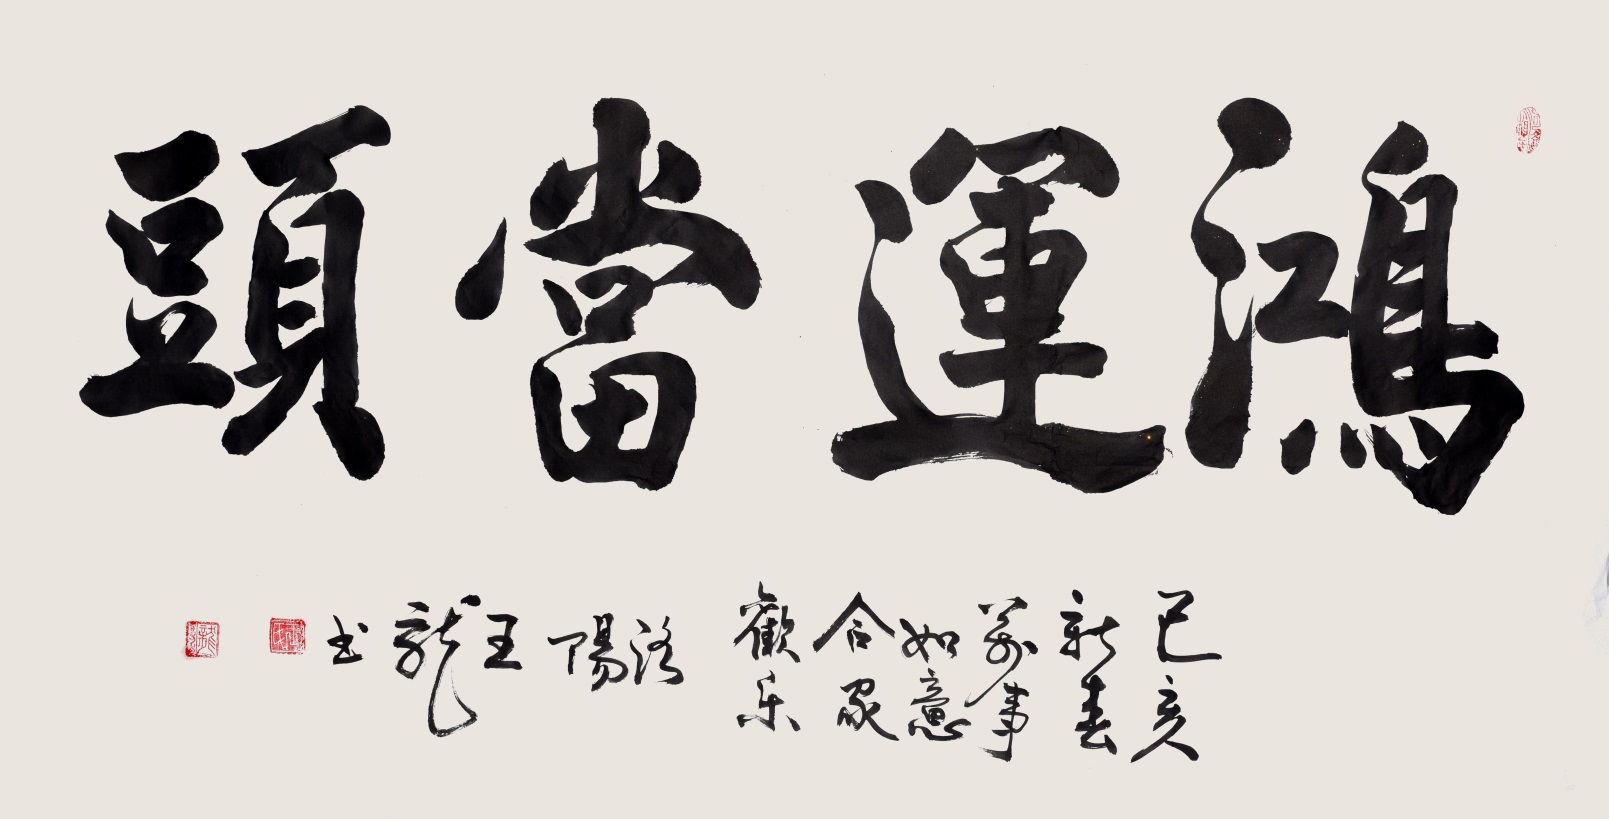 鴻運當頭
己亥
新春
萬事
如意
合家
歡乐
洛陽
王龍书